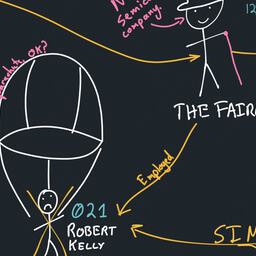 Semico
company.
12
parachute, OK?
THE FAIR
Employed
021
ROBERT
KELLY
SIM